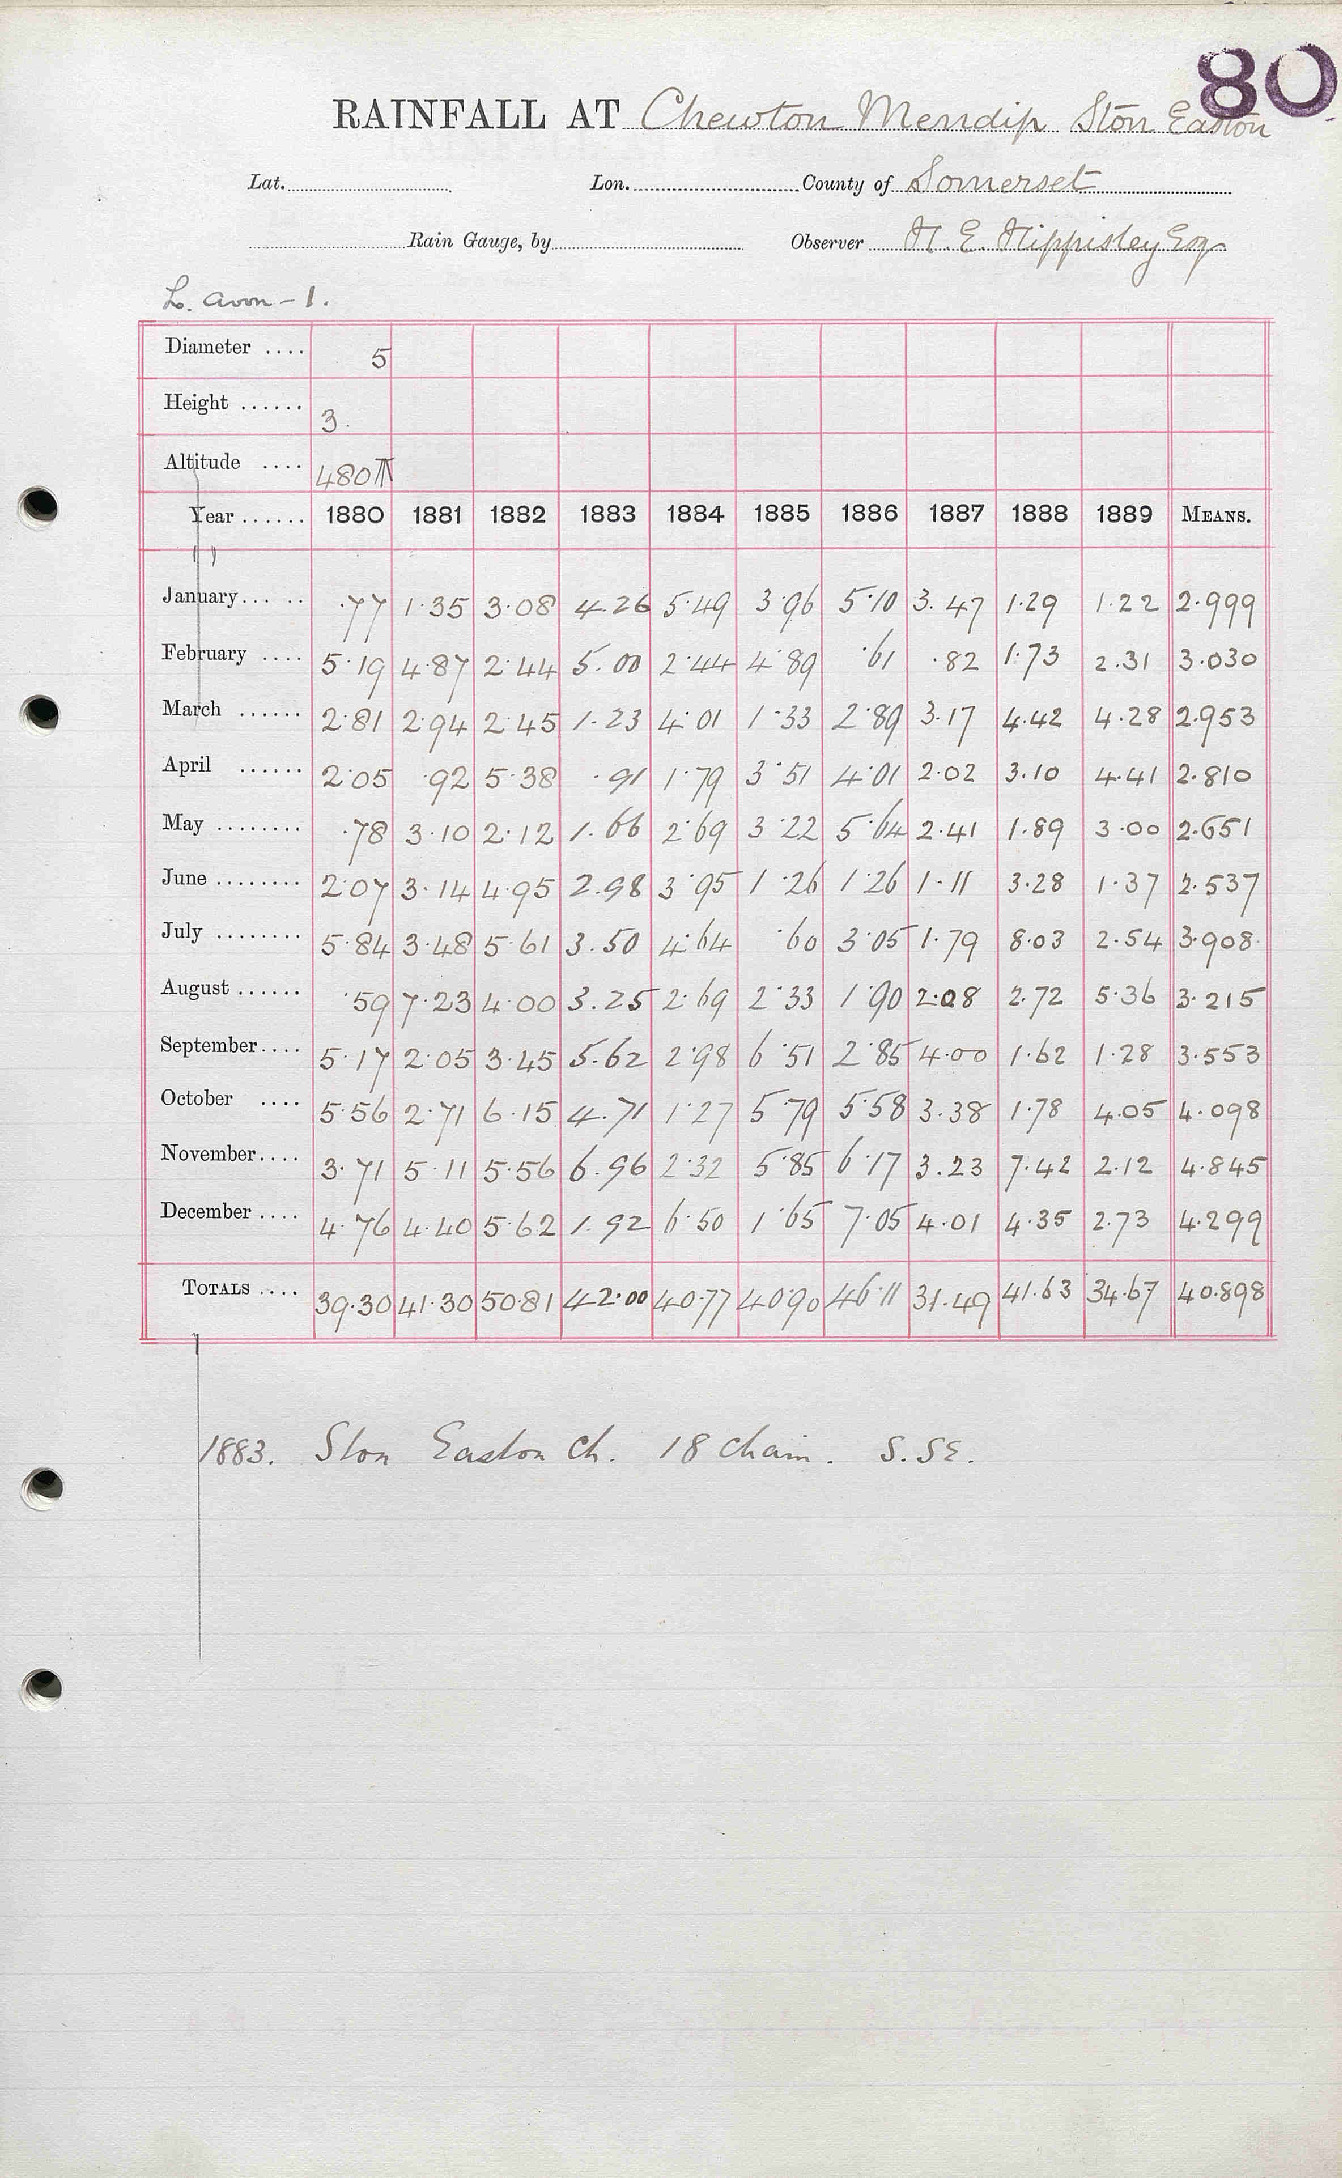 80
RAINFALL AT Chewton Mendip Ston Easton
Lat. Lon. County of Somerset
Rain Gauge, by Observer H. E. Hippisley Esq.
L. Avon - 1.
Diameter .... 5
Height ...... 3.
Altitude .... 480 ft
Year ...... 1880 1881 1882 1883 1884 1885 1886 1887 1888 1889 MEANS.
January... .. .77 1.35 3.08 4.26 5.49 3.96 5.10 3.47 1.29 1.22 2.999
February .... 5.19 4.87 2.44 5.00 2.44 4.89 .61 .82 1.73 2.31 3.030
March ...... 2.81 2.94 2.45 1.23 4.01 1.33 2.89 3.17 4.42 4.28 2.953
April ...... 2.05 .92 5.38 .91 1.79 3.51 4.01 2.02 3.10 4.41 2.810
May ........ .78 3.10 2.12 1.66 2.69 3.22 5.64 2.41 1.89 3.00 2.651
June ........ 2.07 3.14 4.95 2.98 3.95 1.26 1.26 1.11 3.28 1.37 2.537
July ........ 5.84 3.48 5.61 3.50 4.64 .60 3.05 1.79 8.03 2.54 3.908
August ...... .59 7.23 4.00 3.25 2.69 2.33 1.90 2.08 2.72 5.36 3.215
September.... 5.17 2.05 3.45 5.62 2.98 6.51 2.85 4.00 1.62 1.28 3.553
October .... 5.56 2.71 6.15 4.71 1.27 5.79 5.58 3.38 1.78 4.05 4.098
November.... 3.71 5.11 5.56 6.96 2.32 5.85 6.17 3.23 7.42 2.12 4.845
December .... 4.76 4.40 5.62 1.92 6.50 1.65 7.05 4.01 4.35 2.73 4.299
TOTALS .... 39.30 41.30 50.81 42.00 40.77 40.90 46.11 31.49 41.63 34.67 40.898
1883. Ston Easton Ch. 18 chain. S.SE.